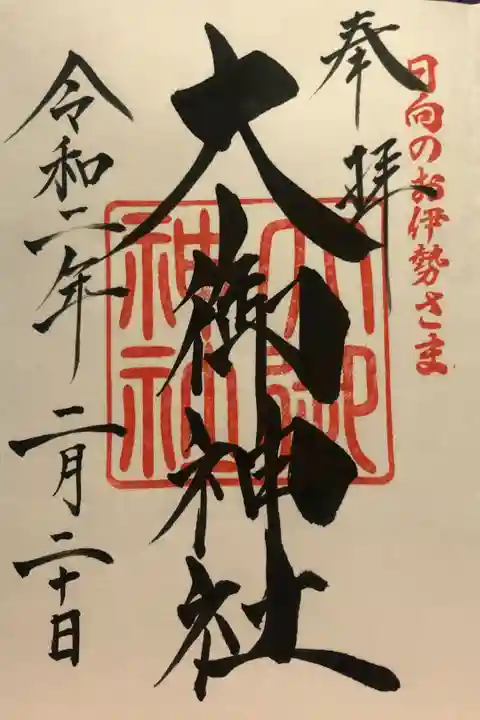 日向のお伊勢さま
奉拝
大御神社
大御
神社
令和二年 二月二十日